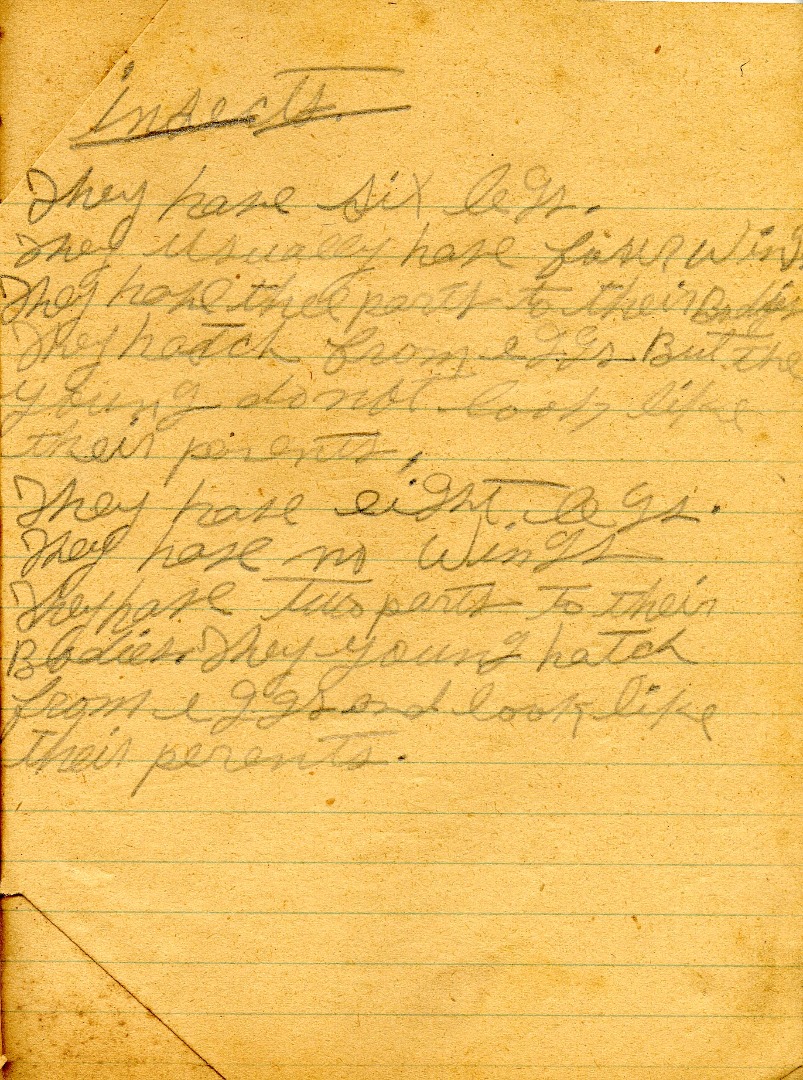 insects.
They have six legs.
They usually have four wings
They have three parts to their Bodies
They hatch from eggs But the
young do not look like
their parents.
They have eight legs.
They have no wings
They have two parts to their
Bodies. They young hatch
from eggs and look like
their perents.